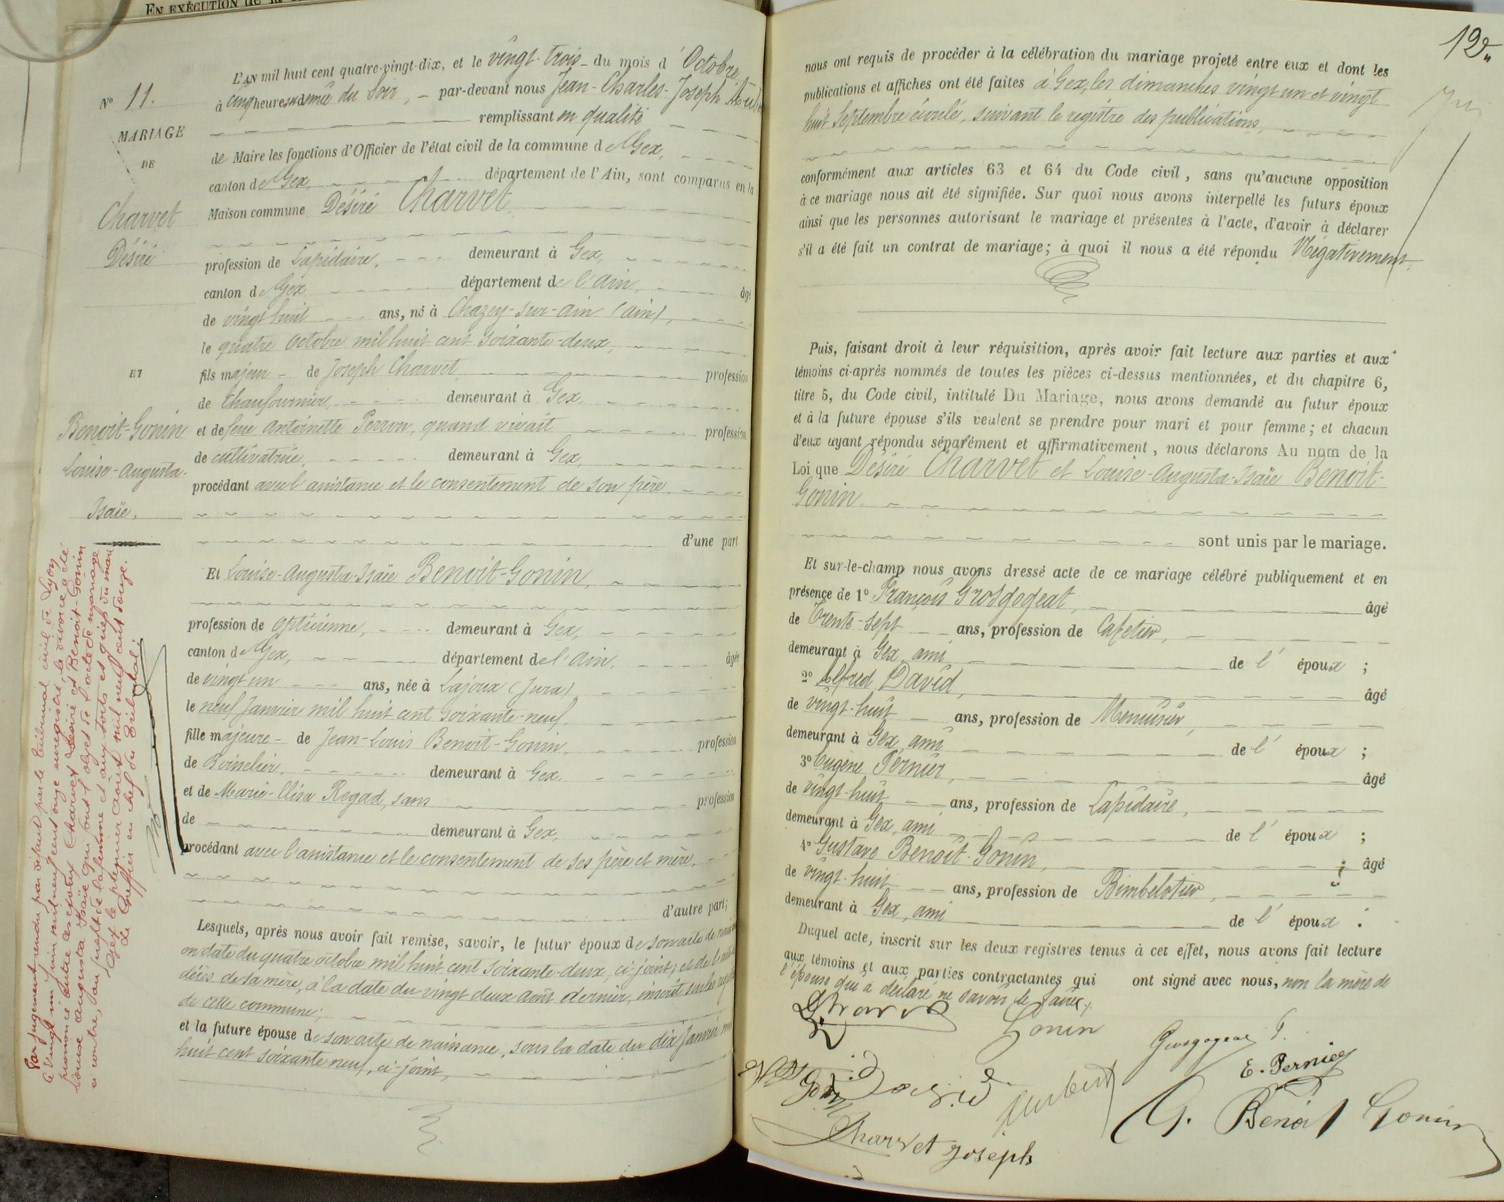 EN EXÉCUTION de la
L'AN mil huit cent quatre-vingt-dix, et le vingt trois du mois d'Octobre
à cinq heures et demie du Soir, par-devant nous Jean-Charles-Joseph
remplissant en qualité
de Maire les fonctions d'Officier de l'état civil de la commune de Gex,
canton de Gex département de l'Ain, sont comparus en la
Maison commune Désiré Charvet
profession de Lapidaire, demeurant à Gex,
canton de Gex département de l'Ain, âgé
de vingt huit ans, né à Chazey-sur-Ain (ain),
le quatre Octobre mil huit cent soixante-deux,
fils majeur de Joseph Charvet profession
de Chaufournier, demeurant à Gex
et de feue Antoinette Perron, quand vivait profession
de cultivatrice, demeurant à Gex,
procédant avec l'assistance et le consentement de son père
d'une part
Et Louise-Augusta-Isaïe Benoit-Gonin,
profession de Opticienne, demeurant à Gex,
canton de Gex, département de l'Ain. âgée
de vingt un ans, née à Lajoux (Jura)
le neuf Janvier mil huit cent soixante-neuf
fille majeure de Jean-Louis Benoit-Gonin, profession
de demeurant à Gex.
et de Marie-Elisa Regad, sans profession
de demeurant à Gex,
procédant avec l'assistance et le consentement de ses père et mère.
d'autre part;
Lesquels, après nous avoir fait remise, savoir, le futur époux de son acte de
en date du quatre octobre mil huit cent soixante-deux, ci-joint, et de l'acte de
décès de sa mère, à la date du vingt deux août dernier, inscrit sur les
de cette commune;
et la future épouse de son acte de naissance, sous la date du dix Janvier mil
huit cent soixante neuf, ci-joint,
N° 11.
MARIAGE
DE
Charvet
Désiré
ET
Benoit-Gonin
Louise-Augusta-
Isaïe.
Par jugement rendu par défaut par le tribunal civil de Lyon
le vingt un juin mil neuf cent onze enregistré, le divorce a été
prononcé entre les époux Charvet Désiré et Benoit-Gonin
Louise Augusta Isaïe qui font l'objet de l'acte de mariage
ci contre,
Gex le premier août mil neuf cent douze.
Le Greffier en chef du Tribunal:
12
nous ont requis de procéder à la célébration du mariage projeté entre eux et dont les
publications et affiches ont été faites à Gex, les dimanches vingt un et vingt
huit Septembre écoulé, suivant le registre des publications,
conformément aux articles 63 et 64 du Code civil, sans qu'aucune opposition
à ce mariage nous ait été signifiée. Sur quoi nous avons interpellé les futurs époux
ainsi que les personnes autorisant le mariage et présentes à l'acte, d'avoir à déclarer
s'il a été fait un contrat de mariage; à quoi il nous a été répondu Négativement.
Puis, faisant droit à leur réquisition, après avoir fait lecture aux parties et aux
témoins ci-après nommés de toutes les pièces ci-dessus mentionnées, et du chapitre 6,
titre 5, du Code civil, intitulé Du Mariage, nous avons demandé au futur époux
et à la future épouse s'ils veulent se prendre pour mari et pour femme; et chacun
d'eux ayant répondu séparément et affirmativement, nous déclarons Au nom de la
Loi que Désiré Charvet et Louise-Augusta-Isaïe Benoit-
Gonin
sont unis par le mariage.
Et sur-le-champ nous avons dressé acte de ce mariage célébré publiquement et en
présence de 1° François Grosgogeat, âgé
de Trente-sept ans, profession de Cafetier,
demeurant à Gex, ami de l'époux;
2° Alfred David, âgé
de vingt-huit ans, profession de Menuisier,
demeurant à Gex, ami de l'époux;
3° Eugène Pernier, âgé
de vingt-huit ans, profession de Lapidaire,
demeurant à Gex, ami de l'époux;
4° Gustave Benoit-Gonin, âgé
de vingt-huit ans, profession de Bimbelotier,
demeurant à Gex, ami de l'époux.
Duquel acte, inscrit sur les deux registres tenus à cet effet, nous avons fait lecture
aux témoins et aux parties contractantes qui ont signé avec nous, non la mère de
l'épouse qui a déclaré ne savoir le faire,
Gonin
Grosgogeat F.
E. Pernier
David
G. Benoit Gonin
Charvet Joseph